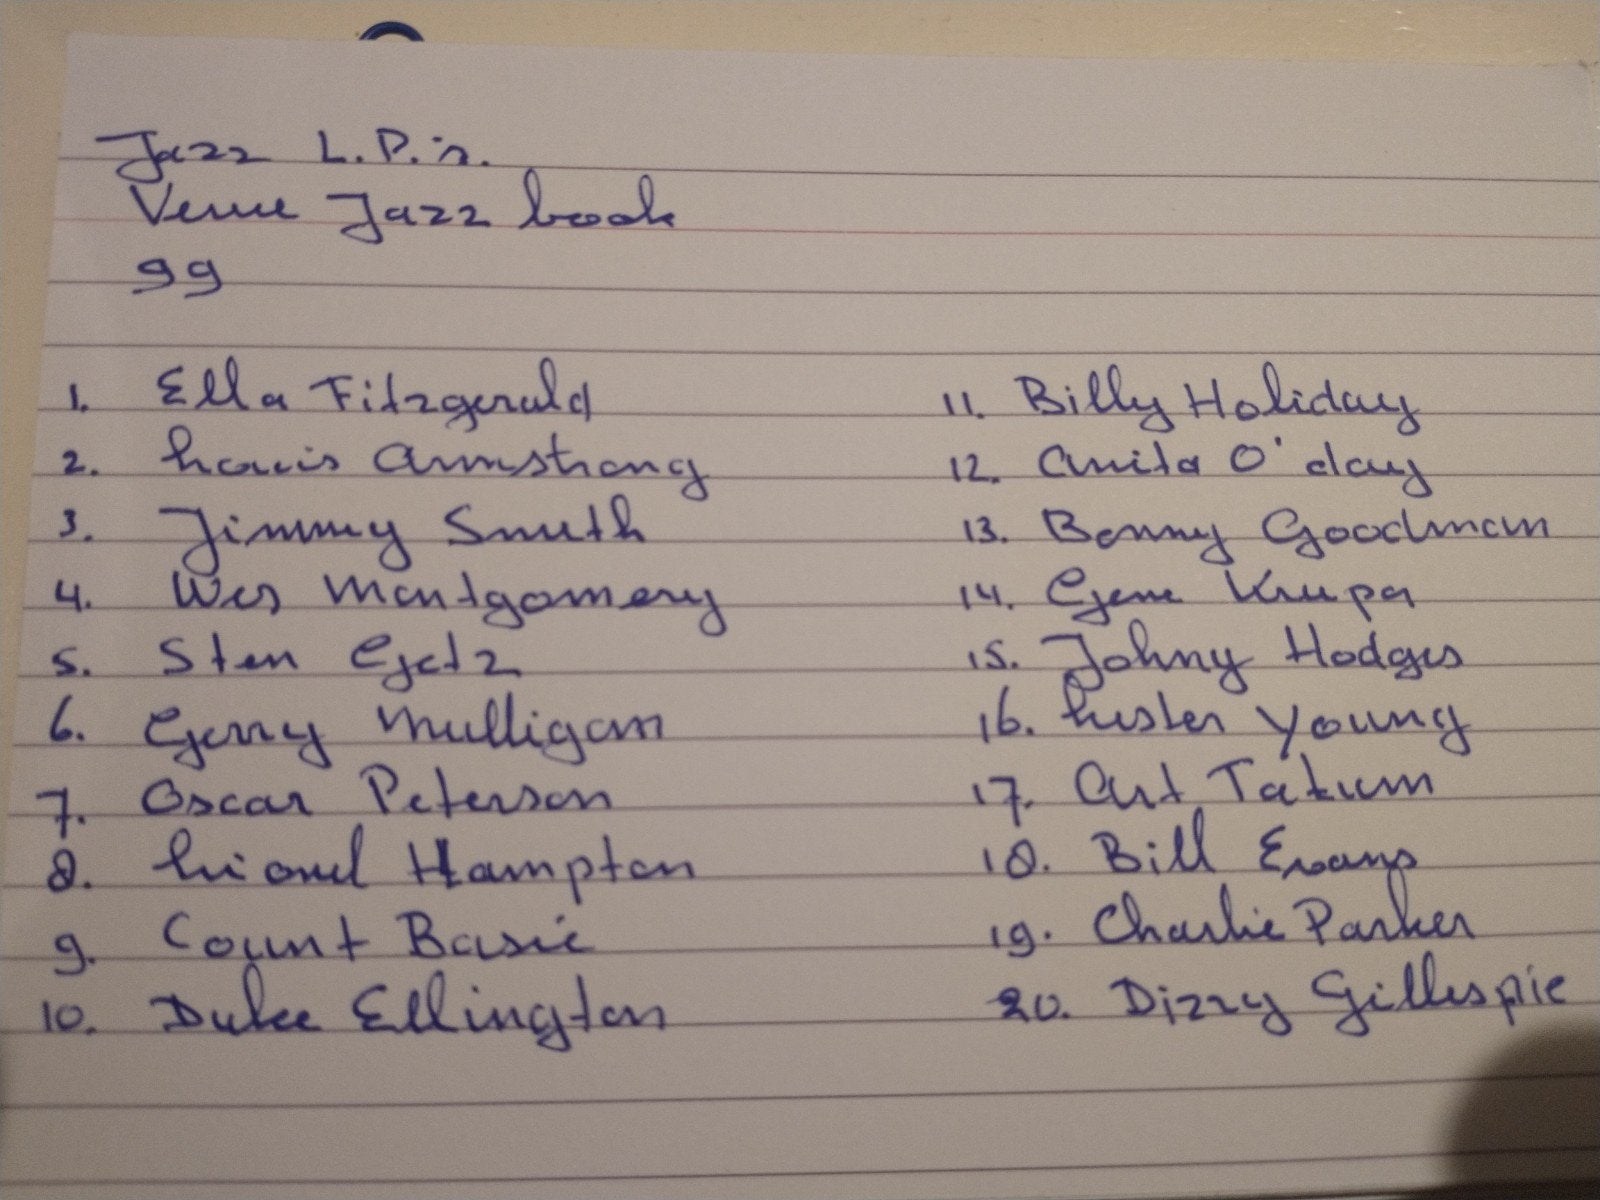 Jazz L.P.'s.
Verve Jazz book
99
1. Ella Fitzgerald
2. Louis Armstrong
3. Jimmy Smith
4. Wes Montgomery
5. Sten Getz
6. Gerry Mulligan
7. Oscar Peterson
8. Lionel Hampton
9. Count Basie
10. Duke Ellington
11. Billy Holiday
12. Anita O'day
13. Benny Goodman
14. Gene Krupa
15. Johny Hodges
16. Lester Young
17. Art Tatum
18. Bill Evans
19. Charlie Parker
20. Dizzy Gillespie